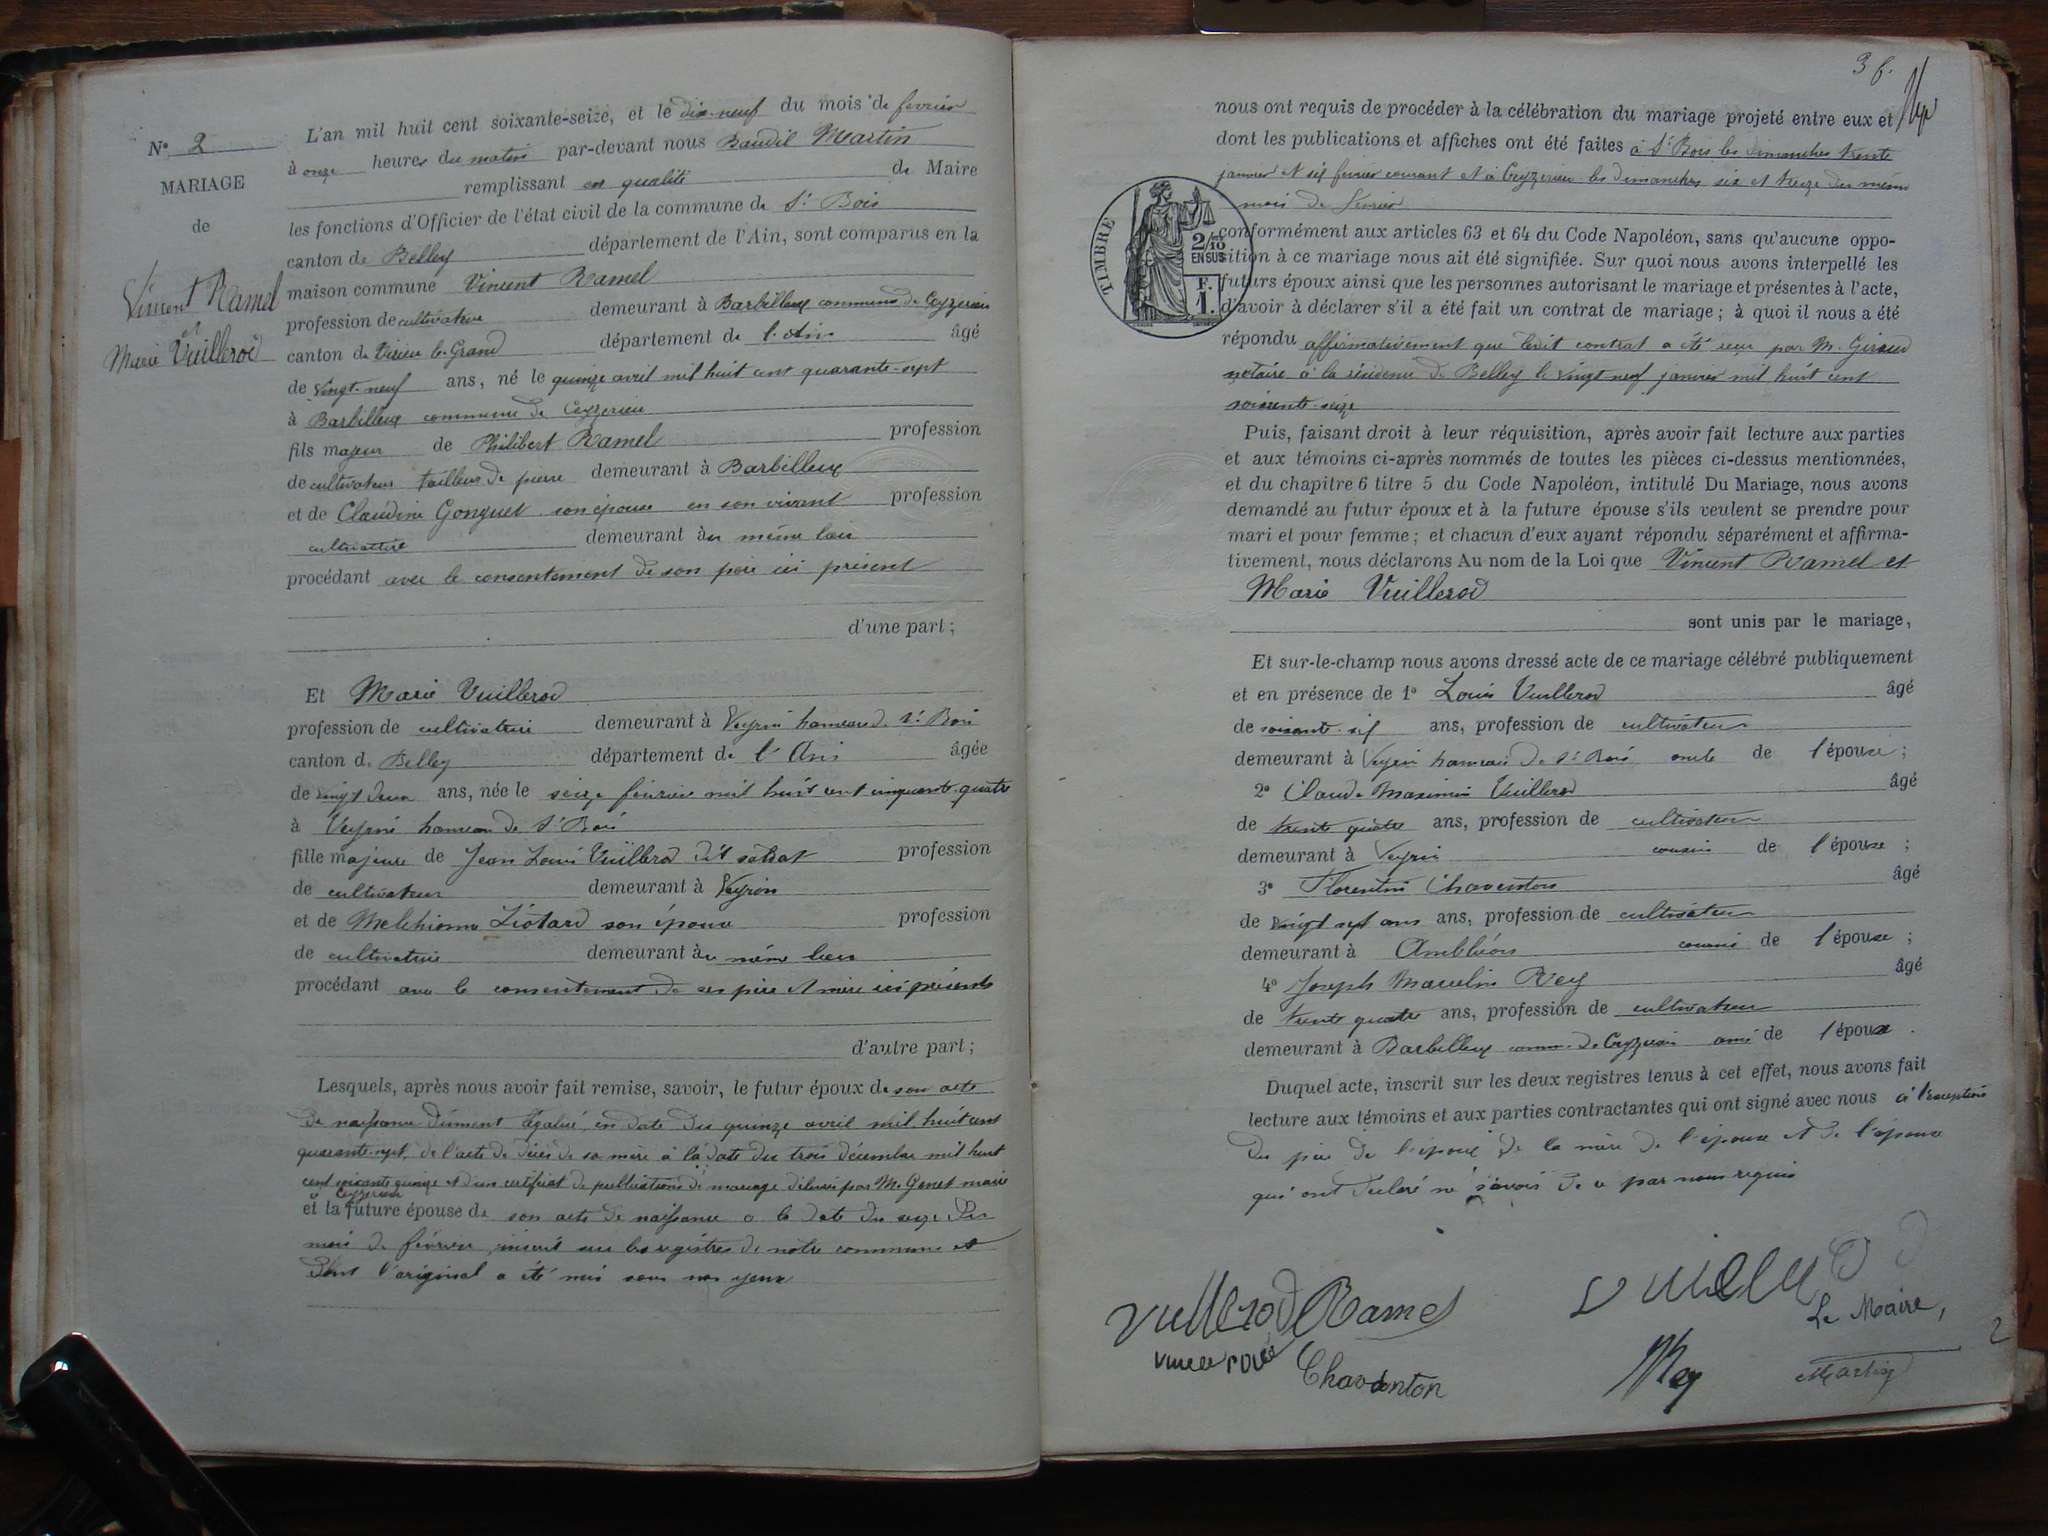 N° 2
MARIAGE
de
Vincent Ramel
et
Marie Vuillerod
L'an mil huit cent soixante-seize, et le dix-neuf du mois de fevrier
à onze heures du matin par-devant nous Baudil Martin
remplissant en qualité de Maire
les fonctions d'Officier de l'état civil de la commune de St Bois
canton de Belley département de l'Ain, sont comparus en la
maison commune Vincent Ramel
profession de cultivateur demeurant à Barbilleux commune de Ceyzerieu
canton de Virieu le Grand département de l'Ain âgé
de vingt-neuf ans, né le quinze avril mil huit cent quarante-sept
à Barbilleux commune de Ceyzerieu
fils majeur de Philibert Ramel profession
de cultivateur tailleur de pierre demeurant à Barbilleux
et de Claudine Gonguet son épouse en son vivant profession
cultivatrice demeurant au même lieu
procédant avec le consentement de son père ici présent
d'une part;
Et Marie Vuillerod
profession de cultivatrice demeurant à Veyrin hameau de St Bois
canton de Belley département de l'Ain âgée
de vingt deux ans, née le seize février mil huit cent cinquante-quatre
à Veyrin hameau de St Bois
fille majeure de Jean Louis Vuillerod dit soldat profession
de cultivateur demeurant à Veyrin
et de Melchionne Liotard son épouse profession
de cultivatrice demeurant au même lieu
procédant avec le consentement de ses père et mère ici présents
d'autre part;
Lesquels, après nous avoir fait remise, savoir, le futur époux de son acte
de naissance dûment légalisé, en date du quinze avril mil huit cent
quarante-sept, de l'acte de décès de sa mère à la date du trois décembre mil huit
cent soixante quinze et d'un certificat de publications de mariage délivré par M. Genet maire
à Ceyzerieu
et la future épouse de son acte de naissance a la date du seize du
mois de février inscrit sur les registres de notre commune et
dont l'original a été mis sous nos yeux
36.
nous ont requis de procéder à la célébration du mariage projeté entre eux et
dont les publications et affiches ont été faites à St Bois les dimanches trente
janvier et six février courant et à Ceyzerieu les dimanches six et treize du même
mois de février
TIMBRE
2/10
EN SUS
F.
1.
conformément aux articles 63 et 64 du Code Napoléon, sans qu'aucune oppo-
sition à ce mariage nous ait été signifiée. Sur quoi nous avons interpellé les
futurs époux ainsi que les personnes autorisant le mariage et présentes à l'acte,
d'avoir à déclarer s'il a été fait un contrat de mariage; à quoi il nous a été
répondu affirmativement que ledit contrat a été reçu par M. Giraud
notaire à la résidence de Belley le vingt neuf janvier mil huit cent
soixante-seize
Puis, faisant droit à leur réquisition, après avoir fait lecture aux parties
et aux témoins ci-après nommés de toutes les pièces ci-dessus mentionnées,
et du chapitre 6 titre 5 du Code Napoléon, intitulé Du Mariage, nous avons
demandé au futur époux et à la future épouse s'ils veulent se prendre pour
mari et pour femme; et chacun d'eux ayant répondu séparément et affirma-
tivement, nous déclarons Au nom de la Loi que Vincent Ramel et
Marie Vuillerod
sont unis par le mariage,
Et sur-le-champ nous avons dressé acte de ce mariage célébré publiquement
et en présence de 1° Louis Vuillerod âgé
de soixante-six ans, profession de cultivateur
demeurant à Veyrin hameau de St Bois oncle de l'épouse;
2° Claude Maximin Vuillerod âgé
de trente quatre ans, profession de cultivateur
demeurant à Veyrin cousin de l'épouse;
3° Florentin Chaventon âgé
de vingt sept ans ans, profession de cultivateur
demeurant à Ambléon cousin de l'épouse;
4° Joseph Marcelin Rey âgé
de trente quatre ans, profession de cultivateur
demeurant à Barbilleux comm. de Ceyzerieu ami de l'époux.
Duquel acte, inscrit sur les deux registres tenus à cet effet, nous avons fait
lecture aux témoins et aux parties contractantes qui ont signé avec nous à l'exception
du père de l'époux de la mère de l'épouse et de l'épouse
qui ont déclaré ne savoir de ce par nous requis
Vuillerod Ramel
Chavanton
Rey
Le Maire,
Martin
2